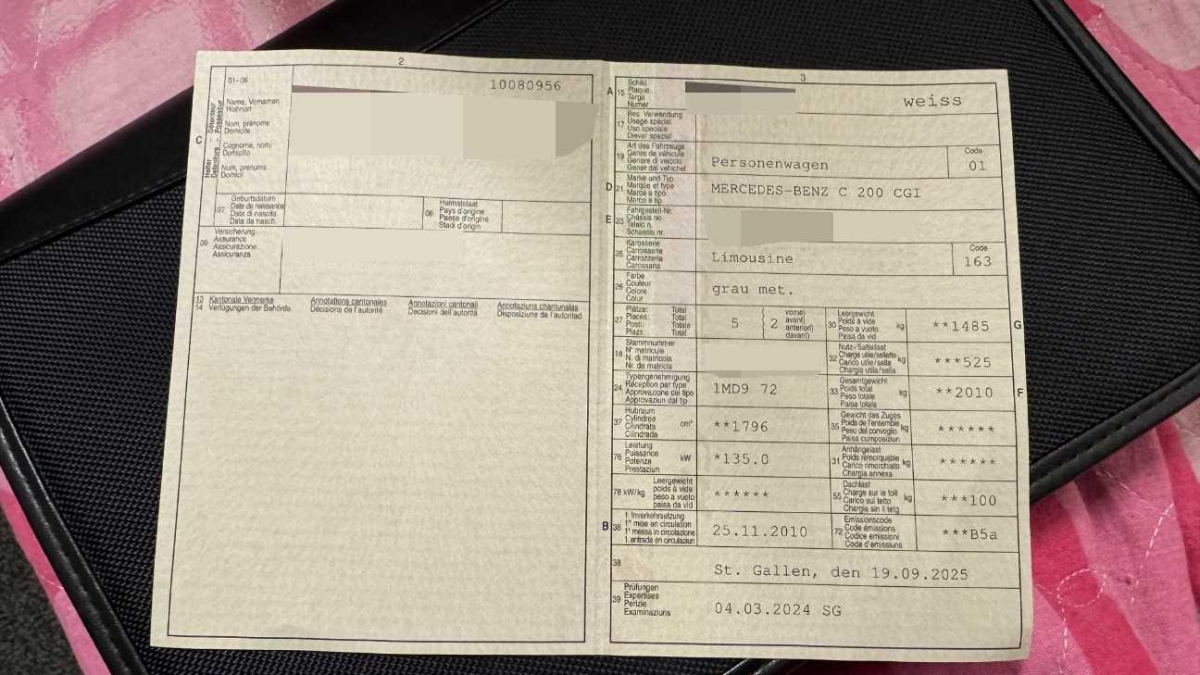 2
01-06
10080956
Name, Vornamen
Wohnort
Nom, prénoms
Domicile
Cognome, nomi
Domicilio
Num, prenums
Domicil
C
07
Geburtsdatum
Date de naissance
Data di nascita
Data da nasch.
08
Heimatstaat
Pays d'origine
Paese d'origine
Stadi d'origin
09
Versicherung
Assurance
Assicurazione
Assicuranza
13 Kantonale Vermerke
14 Verfügungen der Behörde
Annotations cantonales
Décisions de l'autorité
Annotazioni cantonali
Decisioni dell'autorità
Annotaziuns chantunalas
Disposiziuns da l'autoritad
3
A 15
Schild
Plaque
Targa
Numer
weiss
17
Bes. Verwendung
Usage spécial
Uso speciale
Diever spezial
19
Art des Fahrzeugs
Genre de véhicule
Genere di veicolo
Gener dal vehichel
Personenwagen
Code
01
D 21
Marke und Typ
Marque et type
Marca e tipo
Marca e tip
MERCEDES-BENZ C 200 CGI
E 23
Fahrgestell-Nr.
Châssis no
Telaio n.
Schassis nr.
25
Karosserie
Carrosserie
Carrozzeria
Carossaria
Limousine
Code
163
26
Farbe
Couleur
Colore
Colur
grau met.
27
Plätze: Total
Places: Total
Posti: Totale
Plazs: Total
5
2
vorne)
avant)
anteriori)
davant)
30
Leergewicht
Poids à vide
Peso a vuoto
Paisa da vid
kg
**1485
G
18
Stammnummer
N° matricule
N. di matricola
Nr. da matricla
32
Nutz-/Sattellast
Charge utile/sellette
Carico utile/sella
Chargia utila/sella
kg
***525
24
Typengenehmigung
Réception par type
Approvazione del tipo
Approvaziun dal tip
1MD9 72
33
Gesamtgewicht
Poids total
Peso totale
Paisa totala
kg
**2010
F
37
Hubraum
Cylindrée
Cilindrata
Cilindrada
cm³
**1796
35
Gewicht des Zuges
Poids de l'ensemble
Peso del convoglio
Paisa cumposiziun
kg
******
76
Leistung
Puissance
Potenza
Prestaziun
kW
*135.0
31
Anhängelast
Poids remorquable
Carico rimorchiato
Chargia annexa
kg
******
78 kW/kg
Leergewicht
poids à vide
peso a vuoto
paisa da vid
******
55
Dachlast
Charge sur le toit
Carico sul tetto
Chargia sin il tetg
kg
***100
B 36
1. Inverkehrsetzung
1re mise en circulation
1a messa in circolazione
1. entrada en circulaziun
25.11.2010
72
Emissionscode
Code émissions
Codice emissioni
Code d'emissiuns
***B5a
38
St. Gallen, den 19.09.2025
39
Prüfungen
Expertises
Perizie
Examinaziuns
04.03.2024 SG